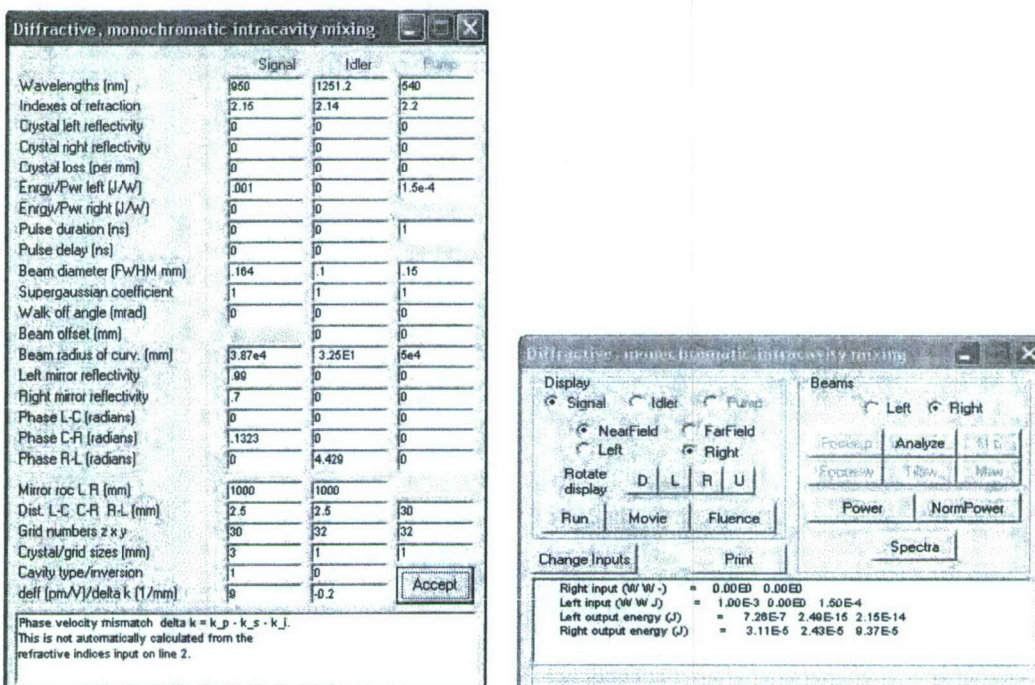 Diffractive, monochromatic intracavity mixing
Signal Idler Pump
Wavelengths (nm) 950 1251.2 540
Indexes of refraction 2.15 2.14 2.2
Crystal left reflectivity 0 0 0
Crystal right reflectivity 0 0 0
Crystal loss (per mm) 0 0 0
Enrgy/Pwr left (J/W) .001 0 1.5e-4
Enrgy/Pwr right (J/W) 0 0
Pulse duration (ns) 0 0 1
Pulse delay (ns) 0 0
Beam diameter (FWHM mm) .164 .1 .15
Supergaussian coefficient 1 1 1
Walk off angle (mrad) 0 0 0
Beam offset (mm) 0 0
Beam radius of curv. (mm) 3.87e4 3.25E1 5e4
Left mirror reflectivity .99 0 0
Right mirror reflectivity .7 0 0
Phase L-C (radians) 0 0 0
Phase C-R (radians) .1323 0 0
Phase R-L (radians) 0 4.429 0
Mirror roc L R (mm) 1000 1000
Dist. L-C C-R R-L (mm) 2.5 2.5 30
Grid numbers z x y 30 32 32
Crystal/grid sizes (mm) 3 1 1
Cavity type/inversion 1 0
deff (pm/V)/delta k (1/mm) 9 -0.2
Accept
Phase velocity mismatch delta k = k_p - k_s - k_i.
This is not automatically calculated from the
refractive indices input on line 2.
Diffractive, monochromatic intracavity mixing
Display
Signal Idler Pump
NearField FarField
Left Right
Rotate
display D L R U
Run Movie Fluence
Beams
Left Right
Analyze
Power NormPower
Spectra
Change Inputs Print
Right input (W W -) = 0.00E0 0.00E0
Left input (W W J) = 1.00E-3 0.00E0 1.50E-4
Left output energy (J) = 7.26E-7 2.49E-15 2.15E-14
Right output energy (J) = 3.11E-5 2.43E-5 9.37E-5